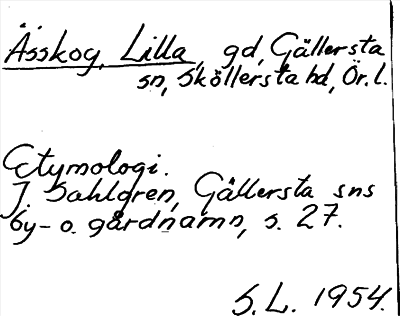 Ässkog, Lilla, gd, Gällersta
sn, Sköllersta hd, Ör. l.
Etymologi.
J. Sahlgren, Gällersta sns
by- o. gårdnamn, s. 27.
S.L. 1954.